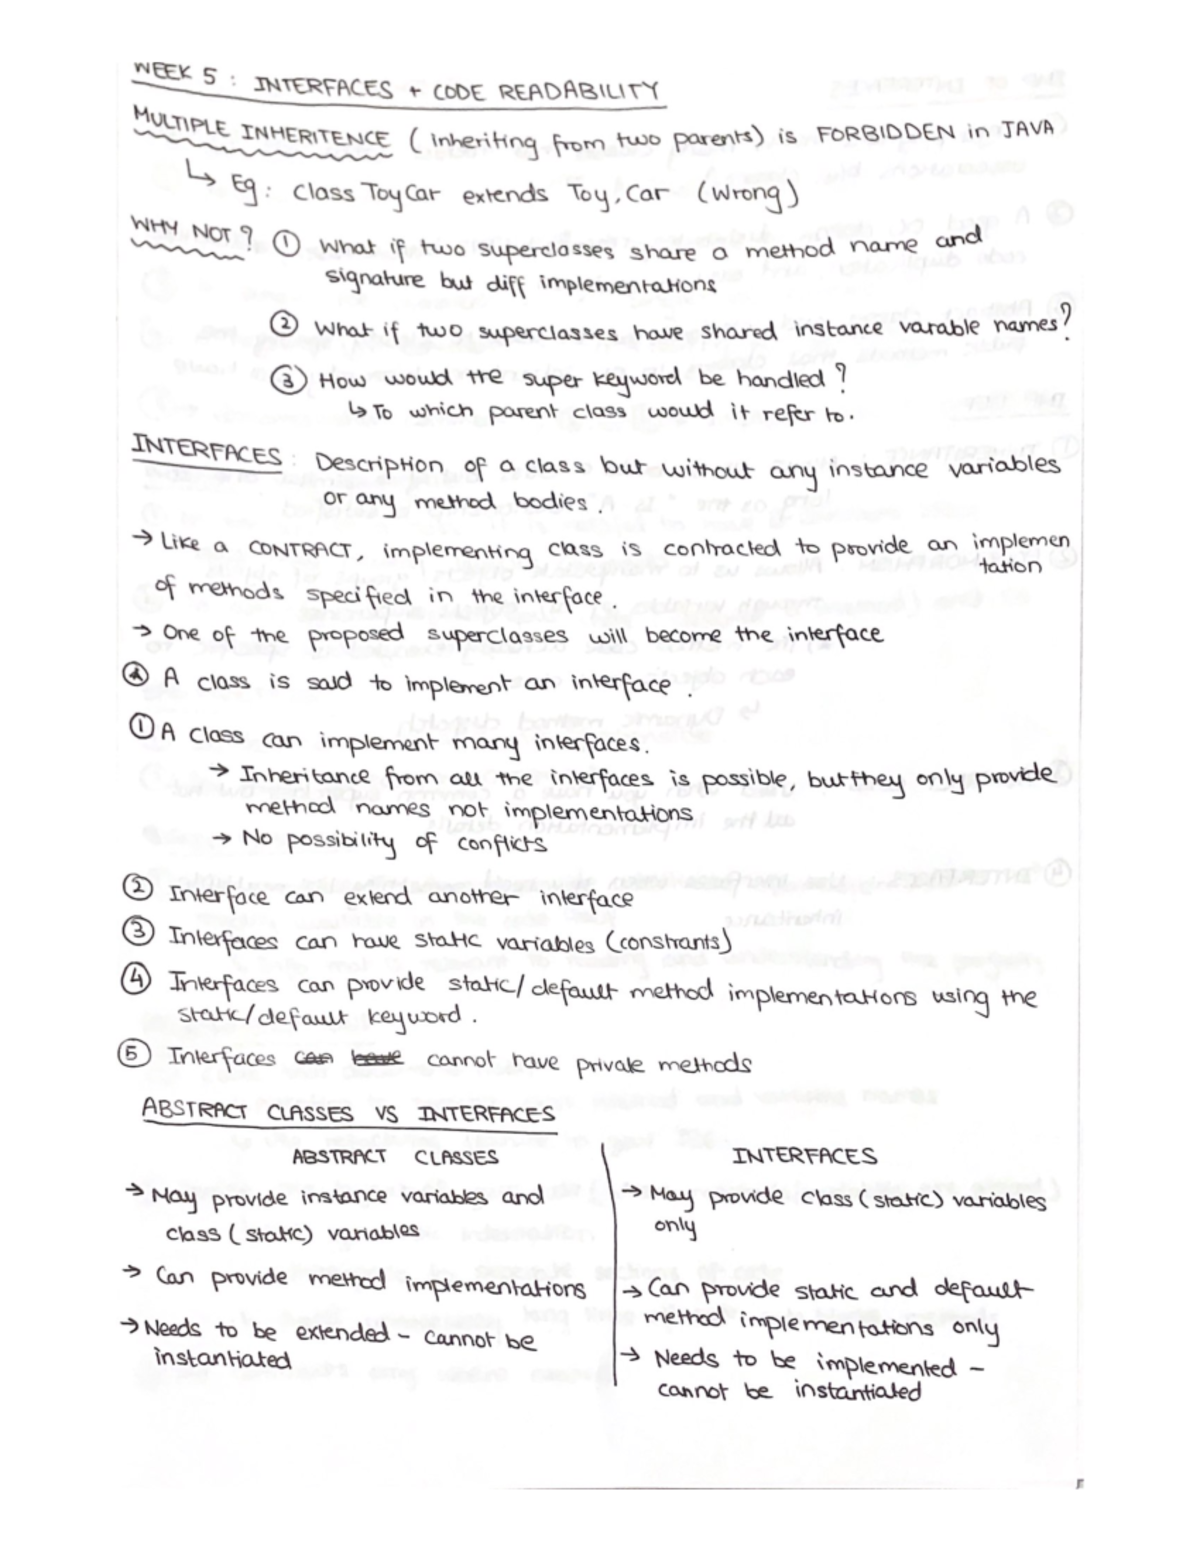 WEEK 5 : INTERFACES + CODE READABILITY
MULTIPLE INHERITENCE ( inheriting from two parents) is FORBIDDEN in JAVA
↳ Eg: class ToyCar extends Toy, Car (Wrong)
WHY NOT? ① What if two superclasses share a method name and
signature but diff implementations
② What if two superclasses have shared instance varable names?
③ How would the super keyword be handled?
↳ To which parent class would it refer to.
INTERFACES : Description of a class but without any instance variables
or any method bodies.
→ Like a CONTRACT, implementing class is contracted to provide an implemen
tation
of methods specified in the interface.
→ One of the proposed superclasses will become the interface
A class is said to implement an interface.
① A class can implement many interfaces.
→ Inheritance from all the interfaces is possible, but they only provide
method names not implementations
→ No possibility of conflicts
② Interface can extend another interface
③ Interfaces can have static variables (constrants)
④ Interfaces can provide static/default method implementations using the
static/default keyword.
⑤ Interfaces can have cannot have private methods
ABSTRACT CLASSES VS INTERFACES
ABSTRACT CLASSES
→ May provide instance variables and
class (static) variables
→ Can provide method implementations
→ Needs to be extended - cannot be
instantiated
INTERFACES
→ May provide class (static) variables
only
→ Can provide static and default
method implementations only
→ Needs to be implemented -
cannot be instantiated